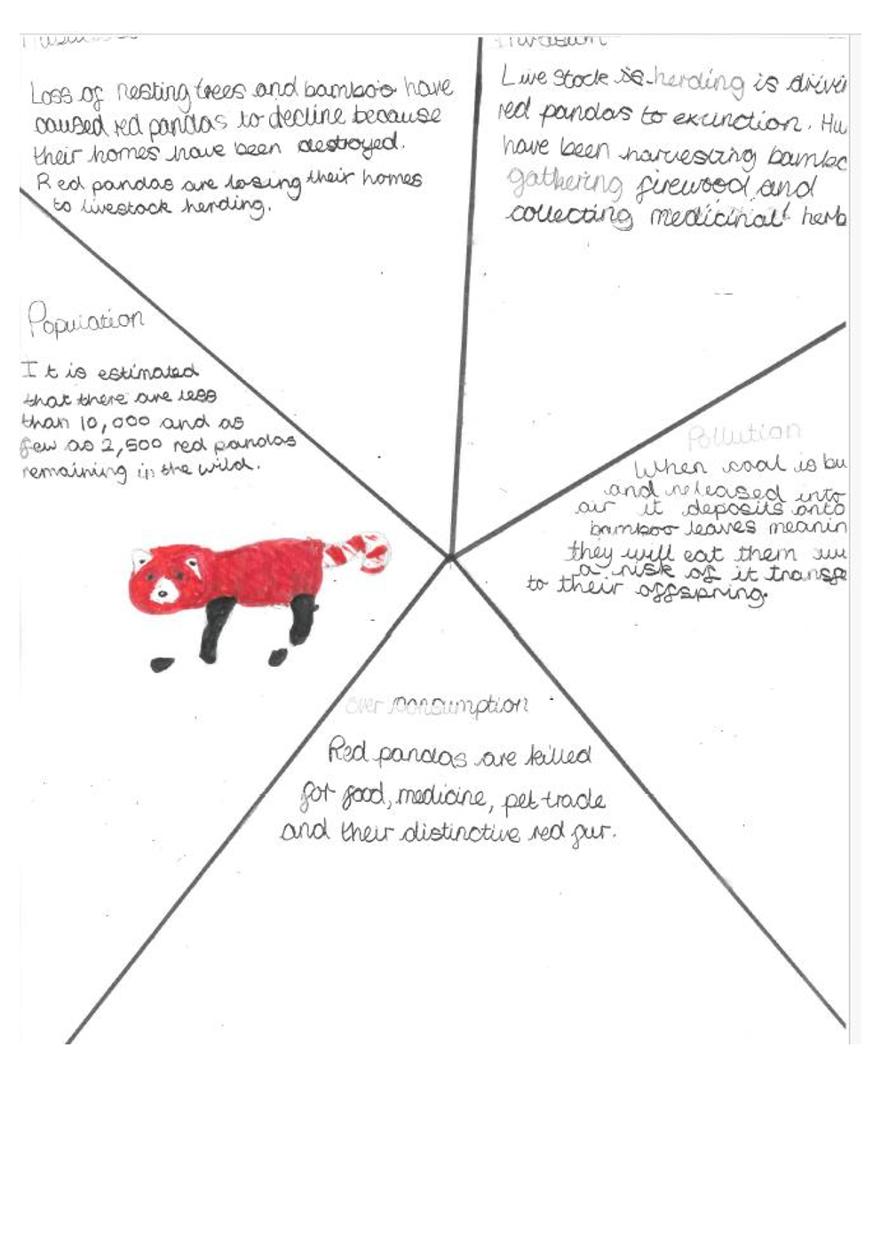 Loss of nesting trees and bamboo have
caused red pandas to decline because
their homes have been destroyed.
Red pandas are losing their homes
to livestock herding.
Live stock is herding is
red pandas to extinction.
have been harvesting
gathering firewood and
collecting medicinal
Population
It is estimated
that there are less
than 10,000 and as
few as 2,500 red pandas
remaining in the wild.
Pollution
When coal is
and released into
air it deposits onto
bamboo leaves
they will eat them
a risk of it
to their offspring.
over consumption
Red pandas are killed
for food, medicine, pet trade
and their distinctive red fur.